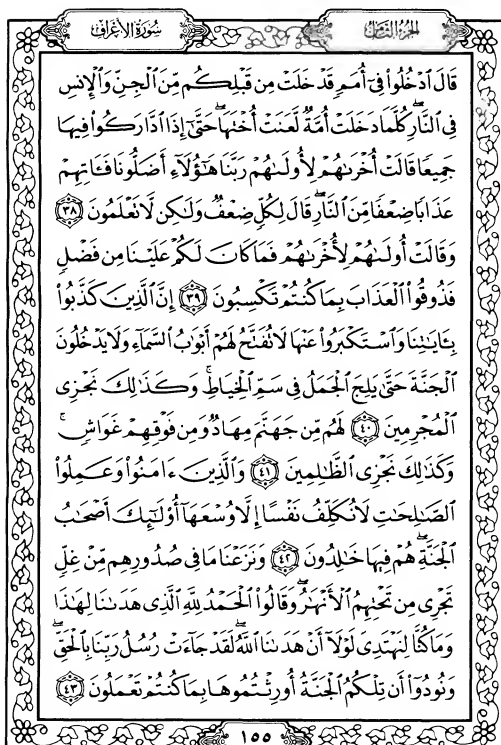 سُورَةُ الأَعْرَافِ
الجُزْءُ الثَّامِنُ
قَالَ ٱدۡخُلُواْ فِيٓ أُمَمٖ قَدۡ خَلَتۡ مِن قَبۡلِكُم مِّنَ ٱلۡجِنِّ وَٱلۡإِنسِ
فِي ٱلنَّارِۖ كُلَّمَا دَخَلَتۡ أُمَّةٞ لَّعَنَتۡ أُخۡتَهَاۖ حَتَّىٰٓ إِذَا ٱدَّارَكُواْ فِيهَا
جَمِيعٗا قَالَتۡ أُخۡرَىٰهُمۡ لِأُولَىٰهُمۡ رَبَّنَا هَٰٓؤُلَآءِ أَضَلُّونَا فَـَٔاتِهِمۡ
عَذَابٗا ضِعۡفٗا مِّنَ ٱلنَّارِۖ قَالَ لِكُلّٖ ضِعۡفٞ وَلَٰكِن لَّا تَعۡلَمُونَ ٣٨
وَقَالَتۡ أُولَىٰهُمۡ لِأُخۡرَىٰهُمۡ فَمَا كَانَ لَكُمۡ عَلَيۡنَا مِن فَضۡلٖ
فَذُوقُواْ ٱلۡعَذَابَ بِمَا كُنتُمۡ تَكۡسِبُونَ ٣٩ إِنَّ ٱلَّذِينَ كَذَّبُواْ
بِـَٔايَٰتِنَا وَٱسۡتَكۡبَرُواْ عَنۡهَا لَا تُفَتَّحُ لَهُمۡ أَبۡوَٰبُ ٱلسَّمَآءِ وَلَا يَدۡخُلُونَ
ٱلۡجَنَّةَ حَتَّىٰ يَلِجَ ٱلۡجَمَلُ فِي سَمِّ ٱلۡخِيَاطِۚ وَكَذَٰلِكَ نَجۡزِي
ٱلۡمُجۡرِمِينَ ٤٠ لَهُم مِّن جَهَنَّمَ مِهَادٞ وَمِن فَوۡقِهِمۡ غَوَاشٖۚ
وَكَذَٰلِكَ نَجۡزِي ٱلظَّٰلِمِينَ ٤١ وَٱلَّذِينَ ءَامَنُواْ وَعَمِلُواْ
ٱلصَّٰلِحَٰتِ لَا نُكَلِّفُ نَفۡسًا إِلَّا وُسۡعَهَآ أُوْلَٰٓئِكَ أَصۡحَٰبُ
ٱلۡجَنَّةِۖ هُمۡ فِيهَا خَٰلِدُونَ ٤٢ وَنَزَعۡنَا مَا فِي صُدُورِهِم مِّنۡ غِلّٖ
تَجۡرِي مِن تَحۡتِهِمُ ٱلۡأَنۡهَٰرُۖ وَقَالُواْ ٱلۡحَمۡدُ لِلَّهِ ٱلَّذِي هَدَىٰنَا لِهَٰذَا
وَمَا كُنَّا لِنَهۡتَدِيَ لَوۡلَآ أَنۡ هَدَىٰنَا ٱللَّهُۖ لَقَدۡ جَآءَتۡ رُسُلُ رَبِّنَا بِٱلۡحَقِّۖ
وَنُودُوٓاْ أَن تِلۡكُمُ ٱلۡجَنَّةُ أُورِثۡتُمُوهَا بِمَا كُنتُمۡ تَعۡمَلُونَ ٤٣
١٥٥